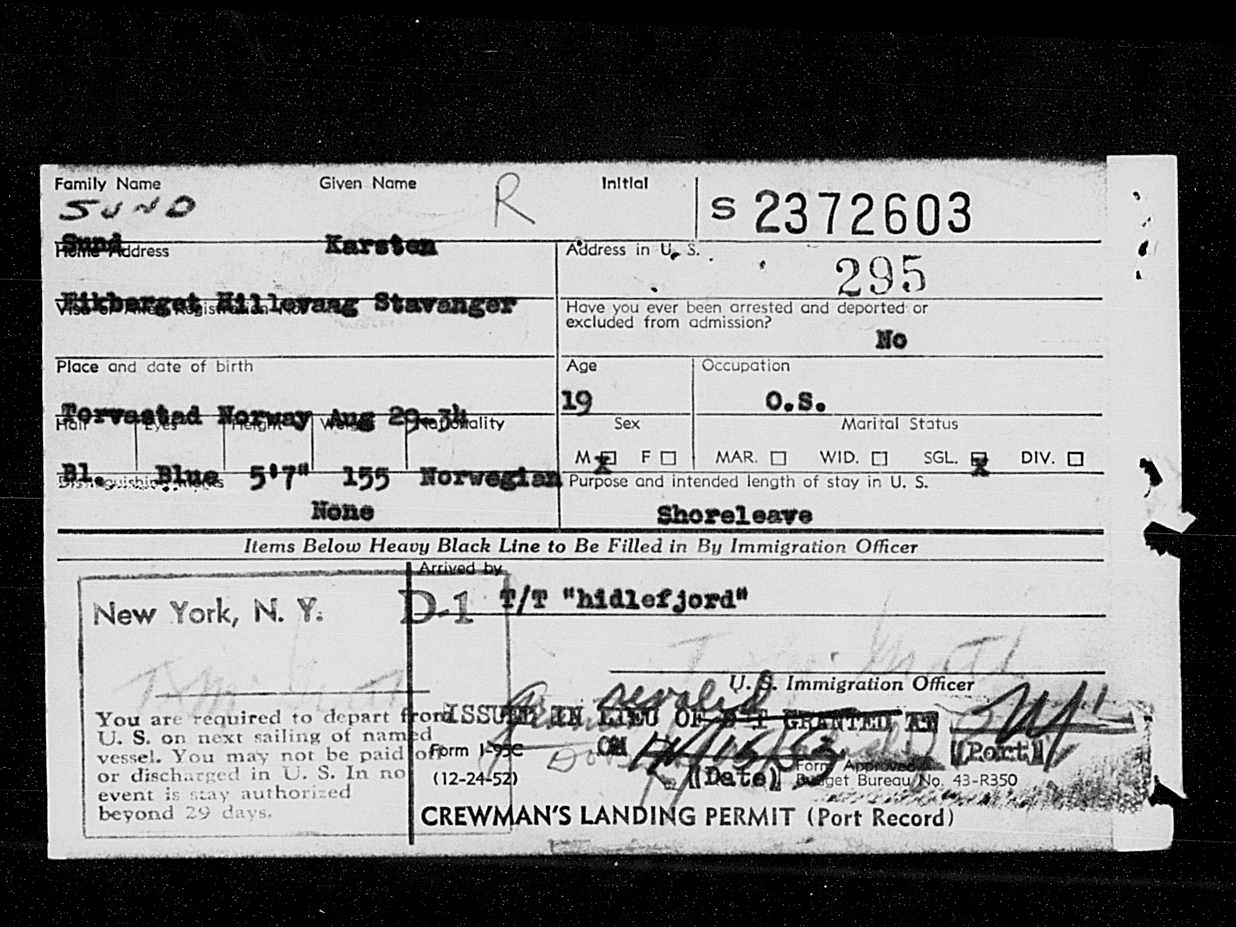 Family Name Given Name R Initial S 2372603
SUND
Sund Karsten
Home Address Address in U. S. 295
Eikberget Hillevaag Stavanger
Have you ever been arrested and deported or
excluded from admission?
No
Place and date of birth Age Occupation
19 O.S.
Torvastad Norway Aug 29-34
Hair Eyes Height Weight Nationality Sex Marital Status
M X F MAR. WID. SGL. X DIV.
Bl. Blue 5'7" 155 Norwegian
Distinguishing Marks Purpose and intended length of stay in U. S.
None Shoreleave
Items Below Heavy Black Line to Be Filled in By Immigration Officer
Arrived by
New York, N. Y. D-1 T/T "hidlefjord"
U. S. Immigration Officer
You are required to depart from
U. S. on next sailing of named
vessel. You may not be paid off
or discharged in U. S. In no
event is stay authorized
beyond 29 days.
revoked
ISSUED IN LIEU OF D-1 GRANTED AT
(Port)
ON
(Date)
Form I-95C
(12-24-52)
Form Approved
Budget Bureau No. 43-R350
CREWMAN'S LANDING PERMIT (Port Record)